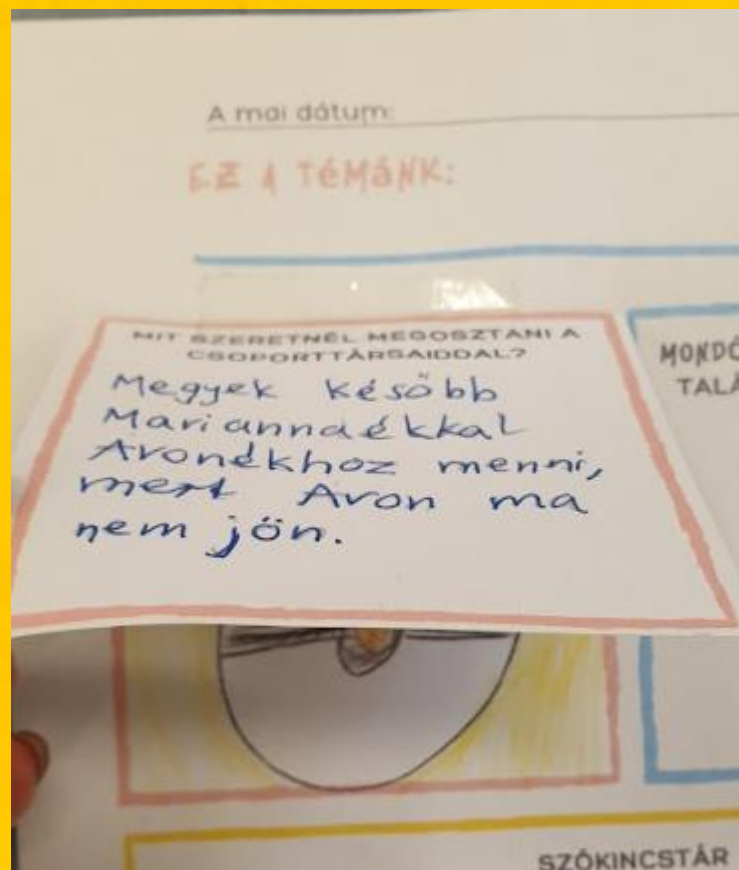 A mai dátum:
EZ A TÉMÁNK:
MIT SZERETNÉL MEGOSZTANI A
CSOPORTTÁRSAIDDAL?
Megyek később
Mariannaékkal
Aronékhoz menni,
mert Aron ma
nem jön.
MONDÓ
TALÁ
SZÓKINCSTÁR